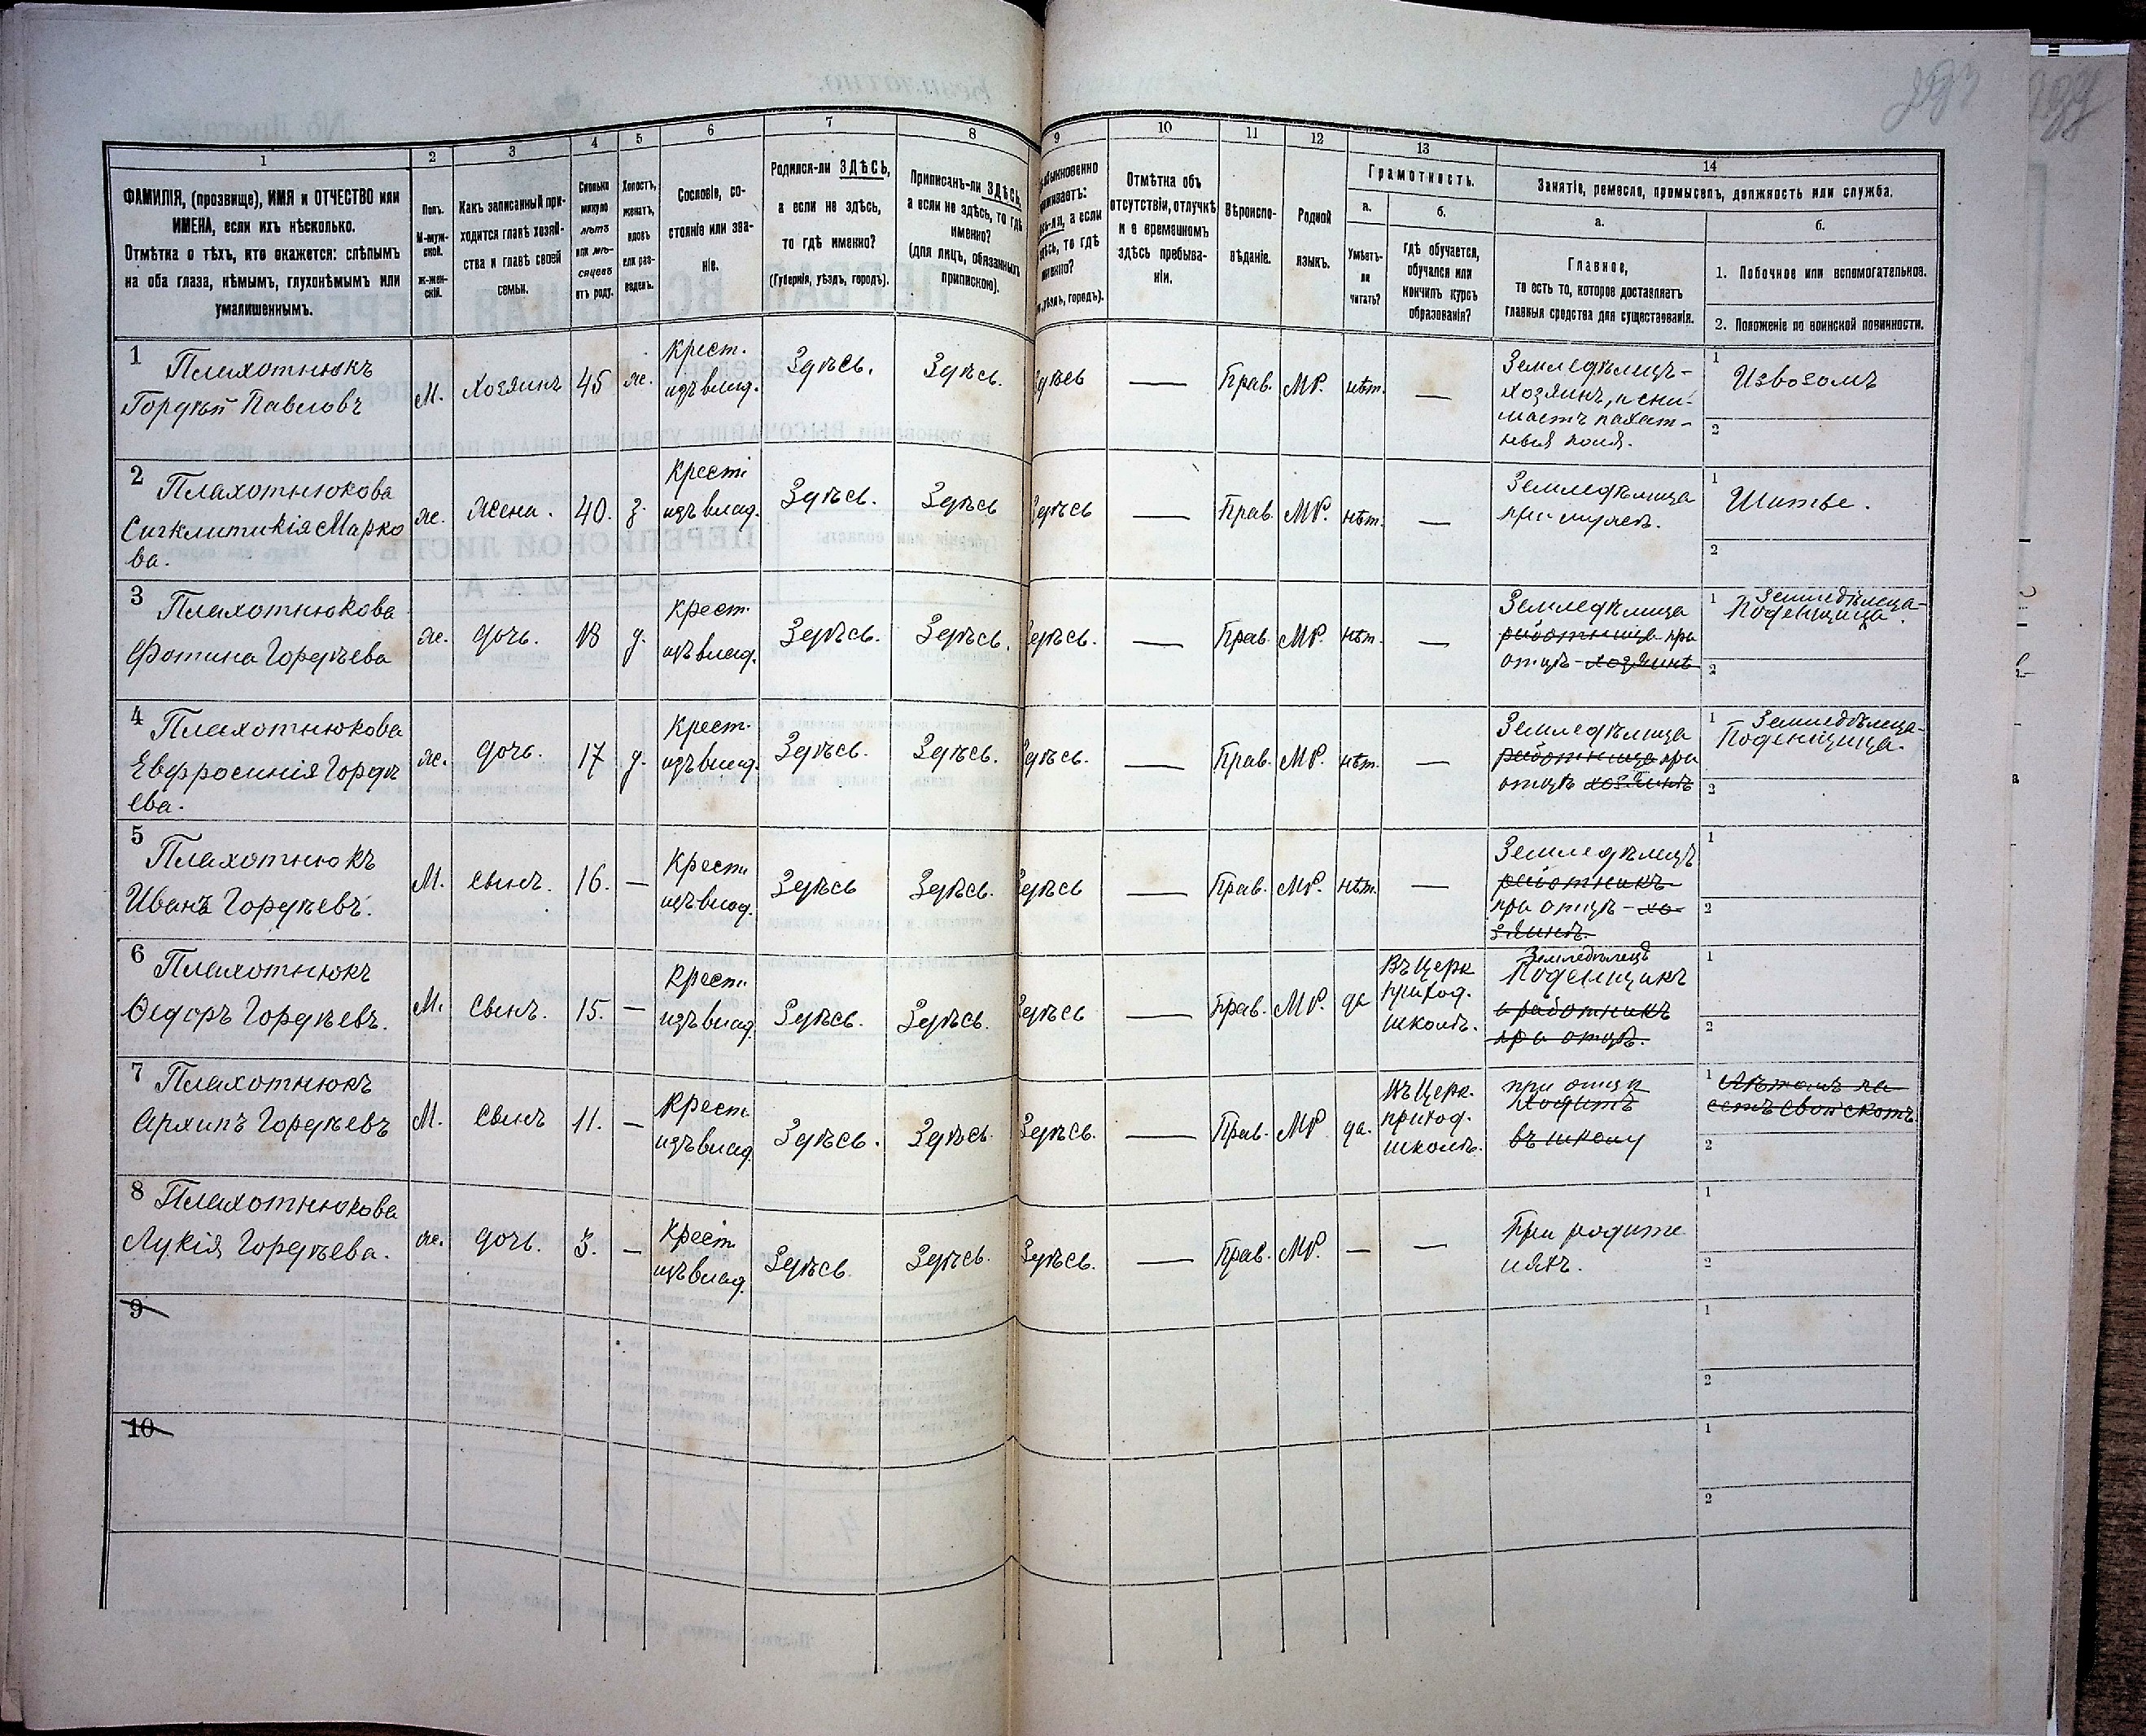 1 2 3 4 5 6 7 8 9 10 11 12 13 14
ФАМИЛІЯ, (прозвище), ИМЯ и ОТЧЕСТВО или
ИМЕНА, если ихъ нѣсколько.
Отмѣтка о тѣхъ, кто окажется: слѣпымъ
на оба глаза, нѣмымъ, глухонѣмымъ или
умалишеннымъ.
Полъ.
М-муж-
ской.
ж-жен-
скій.
Какъ записанный при-
ходится главѣ хозяй-
ства и главѣ своей
семьи.
Сколько
минуло
лѣтъ
или мѣ-
сяцевъ
отъ роду.
Холостъ,
женатъ,
вдовъ
или раз-
веденъ.
Сословіе, со-
стояніе или зва-
ніе.
Родился-ли ЗДѢСЬ,
а если не здѣсь,
то гдѣ именно?
(Губернія, уѣздъ, городъ).
Приписанъ-ли ЗДѢСЬ,
а если не здѣсь, то гдѣ
именно?
(для лицъ, обязанныхъ
припискою).
быкновенно
живаетъ:
сь-ли, а если
здѣсь, то гдѣ
именно?
уѣздъ, городъ).
Отмѣтка объ
отсутствіи, отлучкѣ
и о временномъ
здѣсь пребыва-
ніи.
Вѣроиспо-
вѣданіе.
Родной
языкъ.
Грамотность.
а.
Умѣетъ-
ли
читать?
б.
гдѣ обучается,
обучался или
кончилъ курсъ
образованія?
Занятіе, ремесло, промыселъ, должность или служба.
а.
Главное,
то есть то, которое доставляетъ
главныя средства для существованія.
б.
1. Побочное или вспомогательное.
2. Положеніе по воинской повинности.
1 Плахотнюкъ
Гордѣй Павловъ
М. Хозяинъ 45 же.
Крест.
изъ влад.
Здѣсь. Здѣсь. Здѣсь — Прав. МР. нѣт. —
Земледѣлецъ-
хозяинъ, и сни-
маетъ пахат-
ныя поля.
1 Извозомъ
2
2 Плахотнюкова
Сигклитикія Марко
ва.
же. жена. 40. з.
Крест.
изъ влад.
Здѣсь. Здѣсь Здѣсь — Прав. МР. нѣт. —
Земледѣлица
при мужѣ.
1 Шитье.
2
3 Плахотнюкова
Фотина Гордѣева
же. дочь. 18 д.
Крест.
изъ влад.
Здѣсь. Здѣсь. Здѣсь. — Прав. МР. нѣт. —
Земледѣлица
работница при
отцѣ-хозяинѣ
1 Земледѣлица-
Поденщица.
2
4 Плахотнюкова
Евфросинія Гордѣ
ева.
же. дочь. 17 д.
Крест.
изъ влад.
Здѣсь. Здѣсь. Здѣсь. — Прав. МР. нѣт. —
Земледѣлица
работница при
отцѣ хозяинѣ
1 Земледѣлица-
Поденщица.
2
5 Плахотнюкъ
Иванъ Гордѣевъ.
М. сынъ. 16. —
Крест.
изъ влад.
Здѣсь Здѣсь. Здѣсь — Прав. МР. нѣт. —
Земледѣлецъ
работникъ
при отцѣ-хо-
зяинѣ.
1
2
6 Плахотнюкъ
Ѳедоръ Гордѣевъ.
М. сынъ. 15. —
Крест.
изъ влад.
Здѣсь. Здѣсь. Здѣсь — Прав. МР. да
Въ Церк
приход.
школѣ.
Земледѣлецъ
Поденщикъ
и работникъ
при отцѣ.
1
2
7 Плахотнюкъ
Архипъ Гордѣевъ
М. сынъ 11. —
Крест.
изъ влад.
Здѣсь. Здѣсь Здѣсь. — Прав. МР да.
Въ Церк.
приход.
школѣ.
при отцѣ
Ходитъ
въ школу
1 Лѣтомъ па-
сетъ свой скотъ
2
8 Плахотнюкова
Лукія Гордѣева.
же. дочь. 3. —
Крест.
изъ влад.
Здѣсь Здѣсь. Здѣсь. — Прав. МР. — —
При родите
ляхъ.
1
2
9
1
2
10
1
2